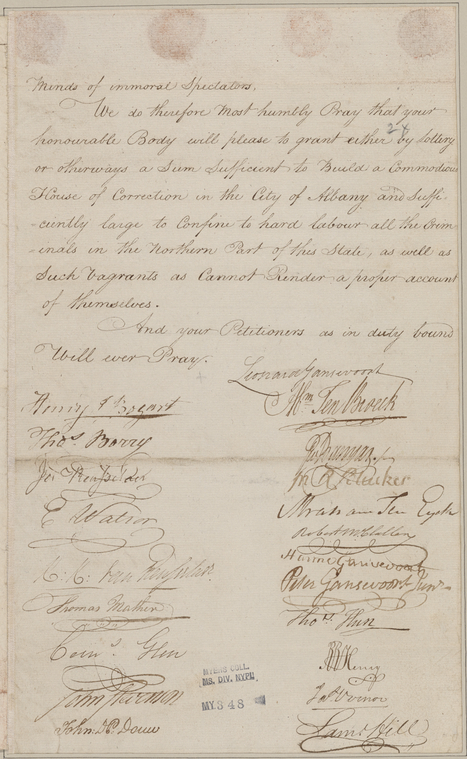 Minds of immoral Spectators.
We do therefore Most humbly Pray that your
honourable Body will please to grant either by lottery
28
or otherways a Sum Sufficient to Build a Commodious
House of Correction in the City of Albany and Suffi-
-ciently large to Confine to hard labour all the Crim-
-inals in the Northern Part of this State, as well as
Such Vagrants as Cannot Render a proper account
of themselves.
And your Petitioners as in duty bound
Will ever Pray.
Leonard Gansevoort
Henry Bogart
Wm Ten Broeck
Thos. Barry
E Watson
Abraham Ten Eyck
Robert McClallen
Harme Gansevoort
Peter Gansevoort Junr
Thomas Mather
Thos. Hun
Corns. Glen
Henry
MYERS COLL.
MS. DIV. NYPL
MY 348
John D. P. Douw
Hill